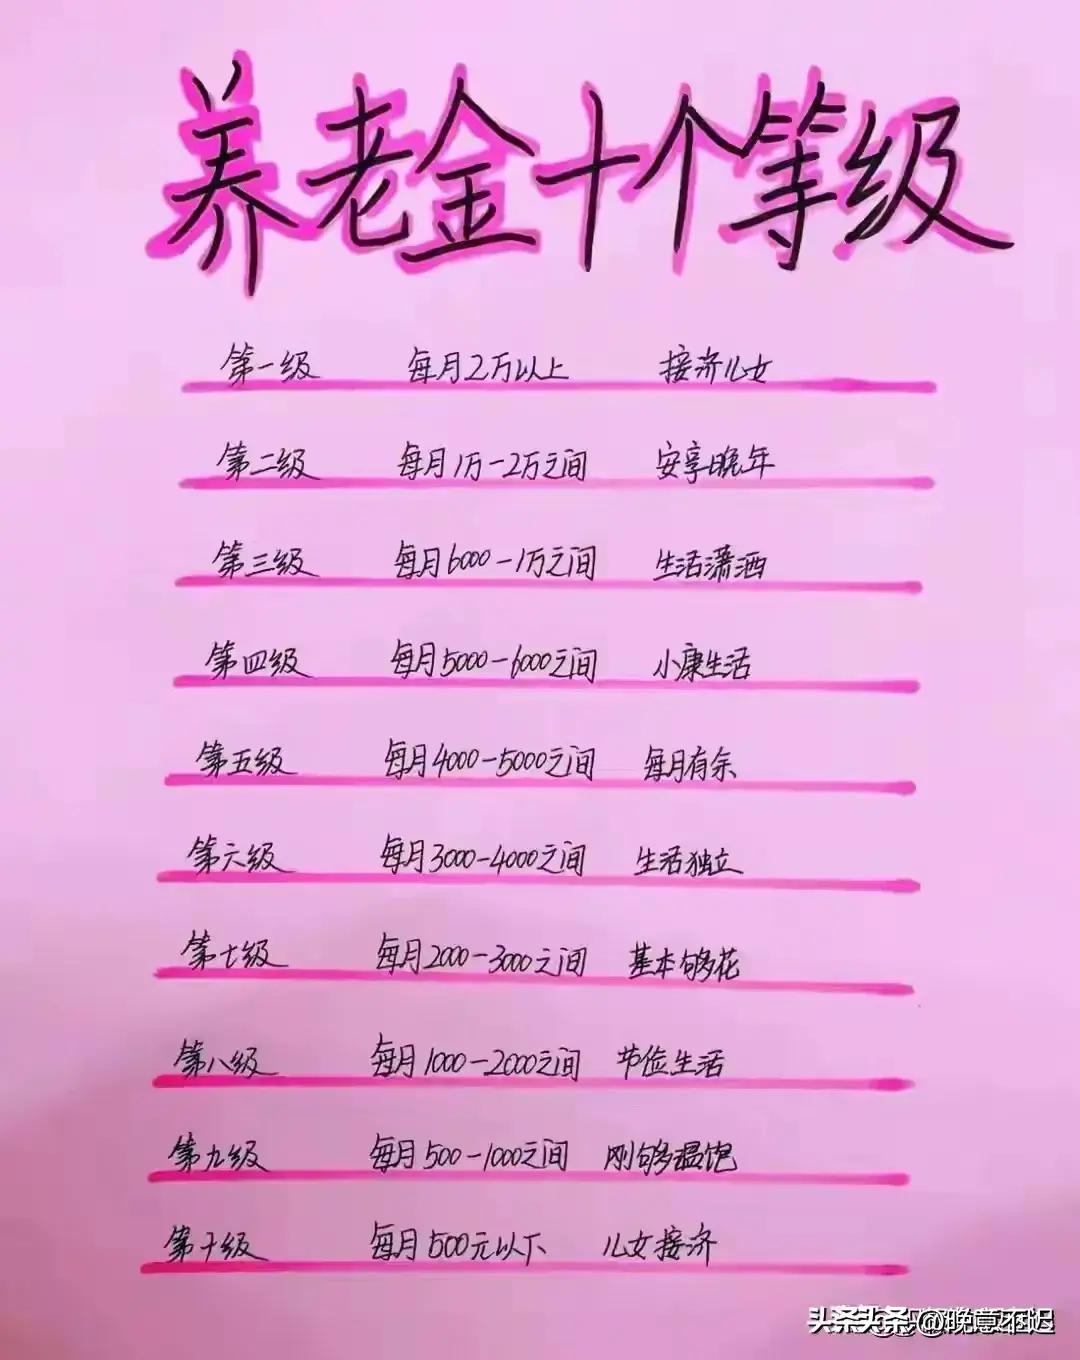 养老金十个等级
第一级 每月2万以上 接济儿女
第二级 每月1万-2万之间 安享晚年
第三级 每月6000-1万之间 生活潇洒
第四级 每月5000-6000之间 小康生活
第五级 每月4000-5000之间 每月有余
第六级 每月3000-4000之间 生活独立
第七级 每月2000-3000之间 基本够花
第八级 每月1000-2000之间 节俭生活
第九级 每月500-1000之间 刚够温饱
第十级 每月500元以下 儿女接济
头条 @晚意不迟